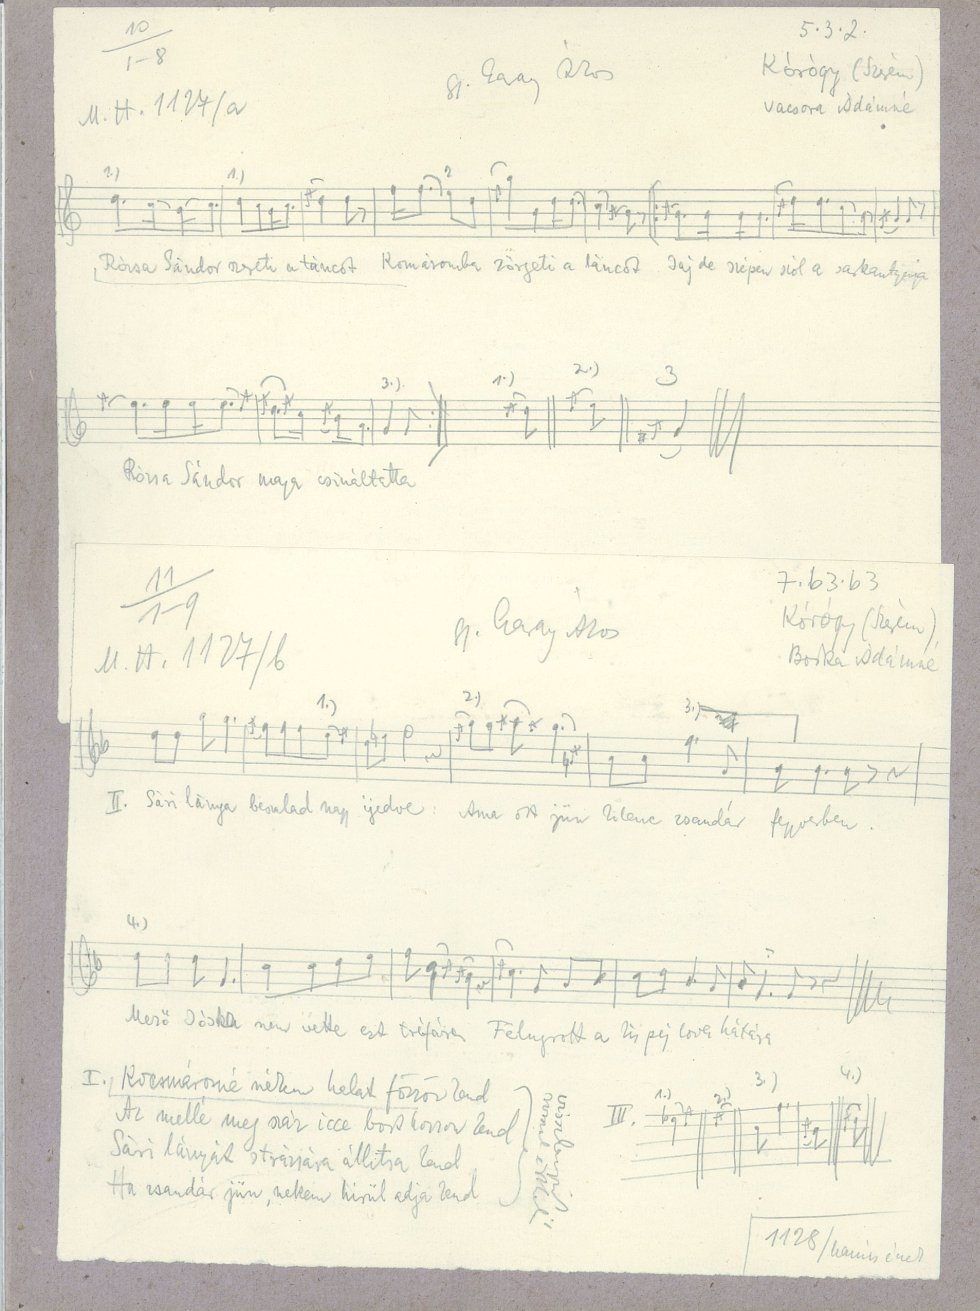 10
1-8
5.3.2.
gy. Garay Ákos
Kórógy (Szerém)
M. H. 1127/a
Vacsora Ádámné
2.) 1.) 2
Rózsa Sándor szereti a táncot Komáromba zörgeti a láncot Jaj de szépen szól a sarkantyuja
3.) 1.) 2.) 3
Rózsa Sándor maga csináltatta
11
1-9
7.b3.b3
gy. Garay Ákos
Kórógy (Szerém)
M. H. 1127/b
Boska Ádámné
1.) 2.) 3.)
II. Sári lánya beszalad nagy ijedve: Ama ott jün kilenc zsandár fegyverben.
4.)
Mező Jóska nem vette ezt tréfára Felugrott a kis pej lova hátára
I. Kocsmárosné nékem halat főzzön kend
Az mellé meg száz icce bort hozzon kend
Sári lányát strázsára állítsa kend
Ha zsandár jün, nekem hírül adja kend
III. 1.) 2.) 3.) 4.)
1128/hamis ének